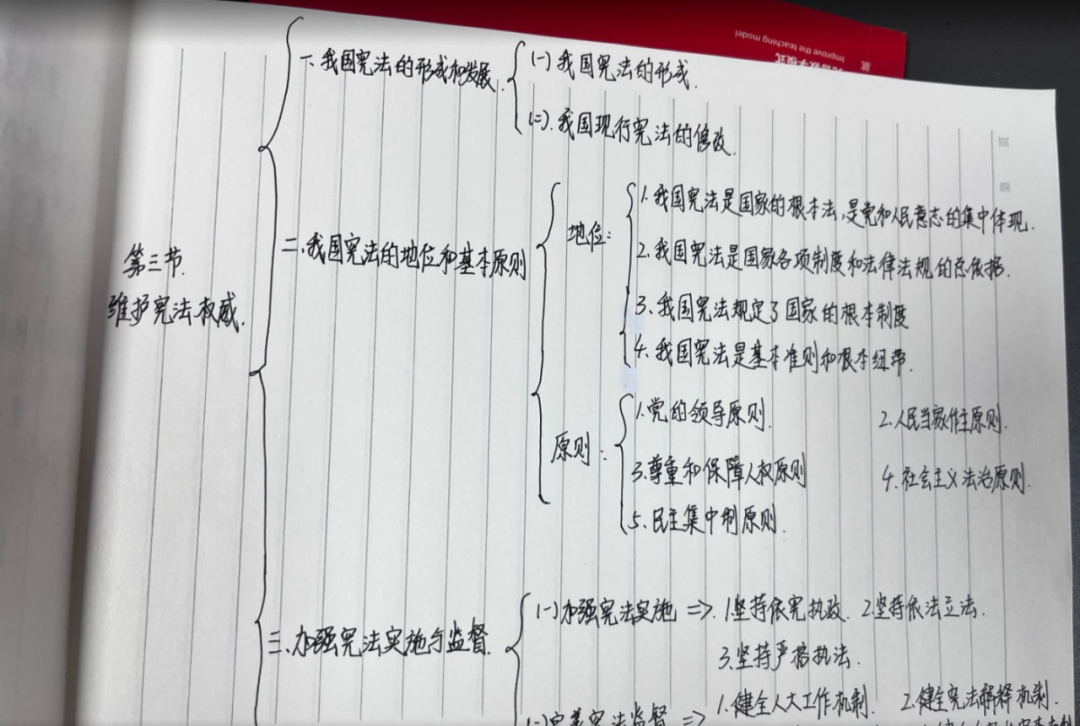 Improve the teaching model
一、我国宪法的形成和发展
(一)我国宪法的形成.
(二).我国现行宪法的修改.
第三节.
维护宪法权威.
二、我国宪法的地位和基本原则
地位:
1.我国宪法是国家的根本法,是党和人民意志的集中体现.
2.我国宪法是国家各项制度和法律法规的总依据.
3.我国宪法规定了国家的根本制度
4.我国宪法是基本准则和根本纽带.
原则:
1.党的领导原则.
2.人民当家作主原则.
3.尊重和保障人权原则
4.社会主义法治原则.
5.民主集中制原则.
三、加强宪法实施与监督.
(一)加强宪法实施 => 1.坚持依宪执政. 2.坚持依法立法.
3.坚持严格执法.
完善宪法监督 =>
1.健全人大工作机制. 2.健全宪法解释机制.